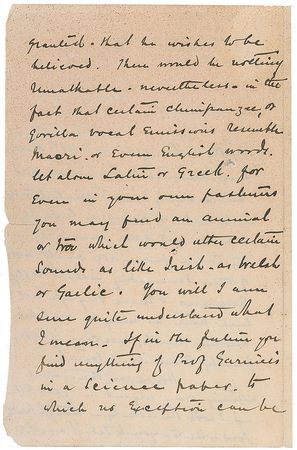 granted - that he wishes to be
believed. There would be nothing
remarkable - nevertheless - in the
fact that certain chimpanzee, or
Gorilla vocal Emissions resemble
Maori - or Even English words.
let alone Latin or Greek. for
Even in your own pastures
you may find an animal
or two which would utter certain
Sounds as like Irish - as Welsh
or Gaelic. You will I am
sure quite understand what
I mean. If in the future you
find anything of Prof Garner's
in a Science paper - to
which no Exception can be